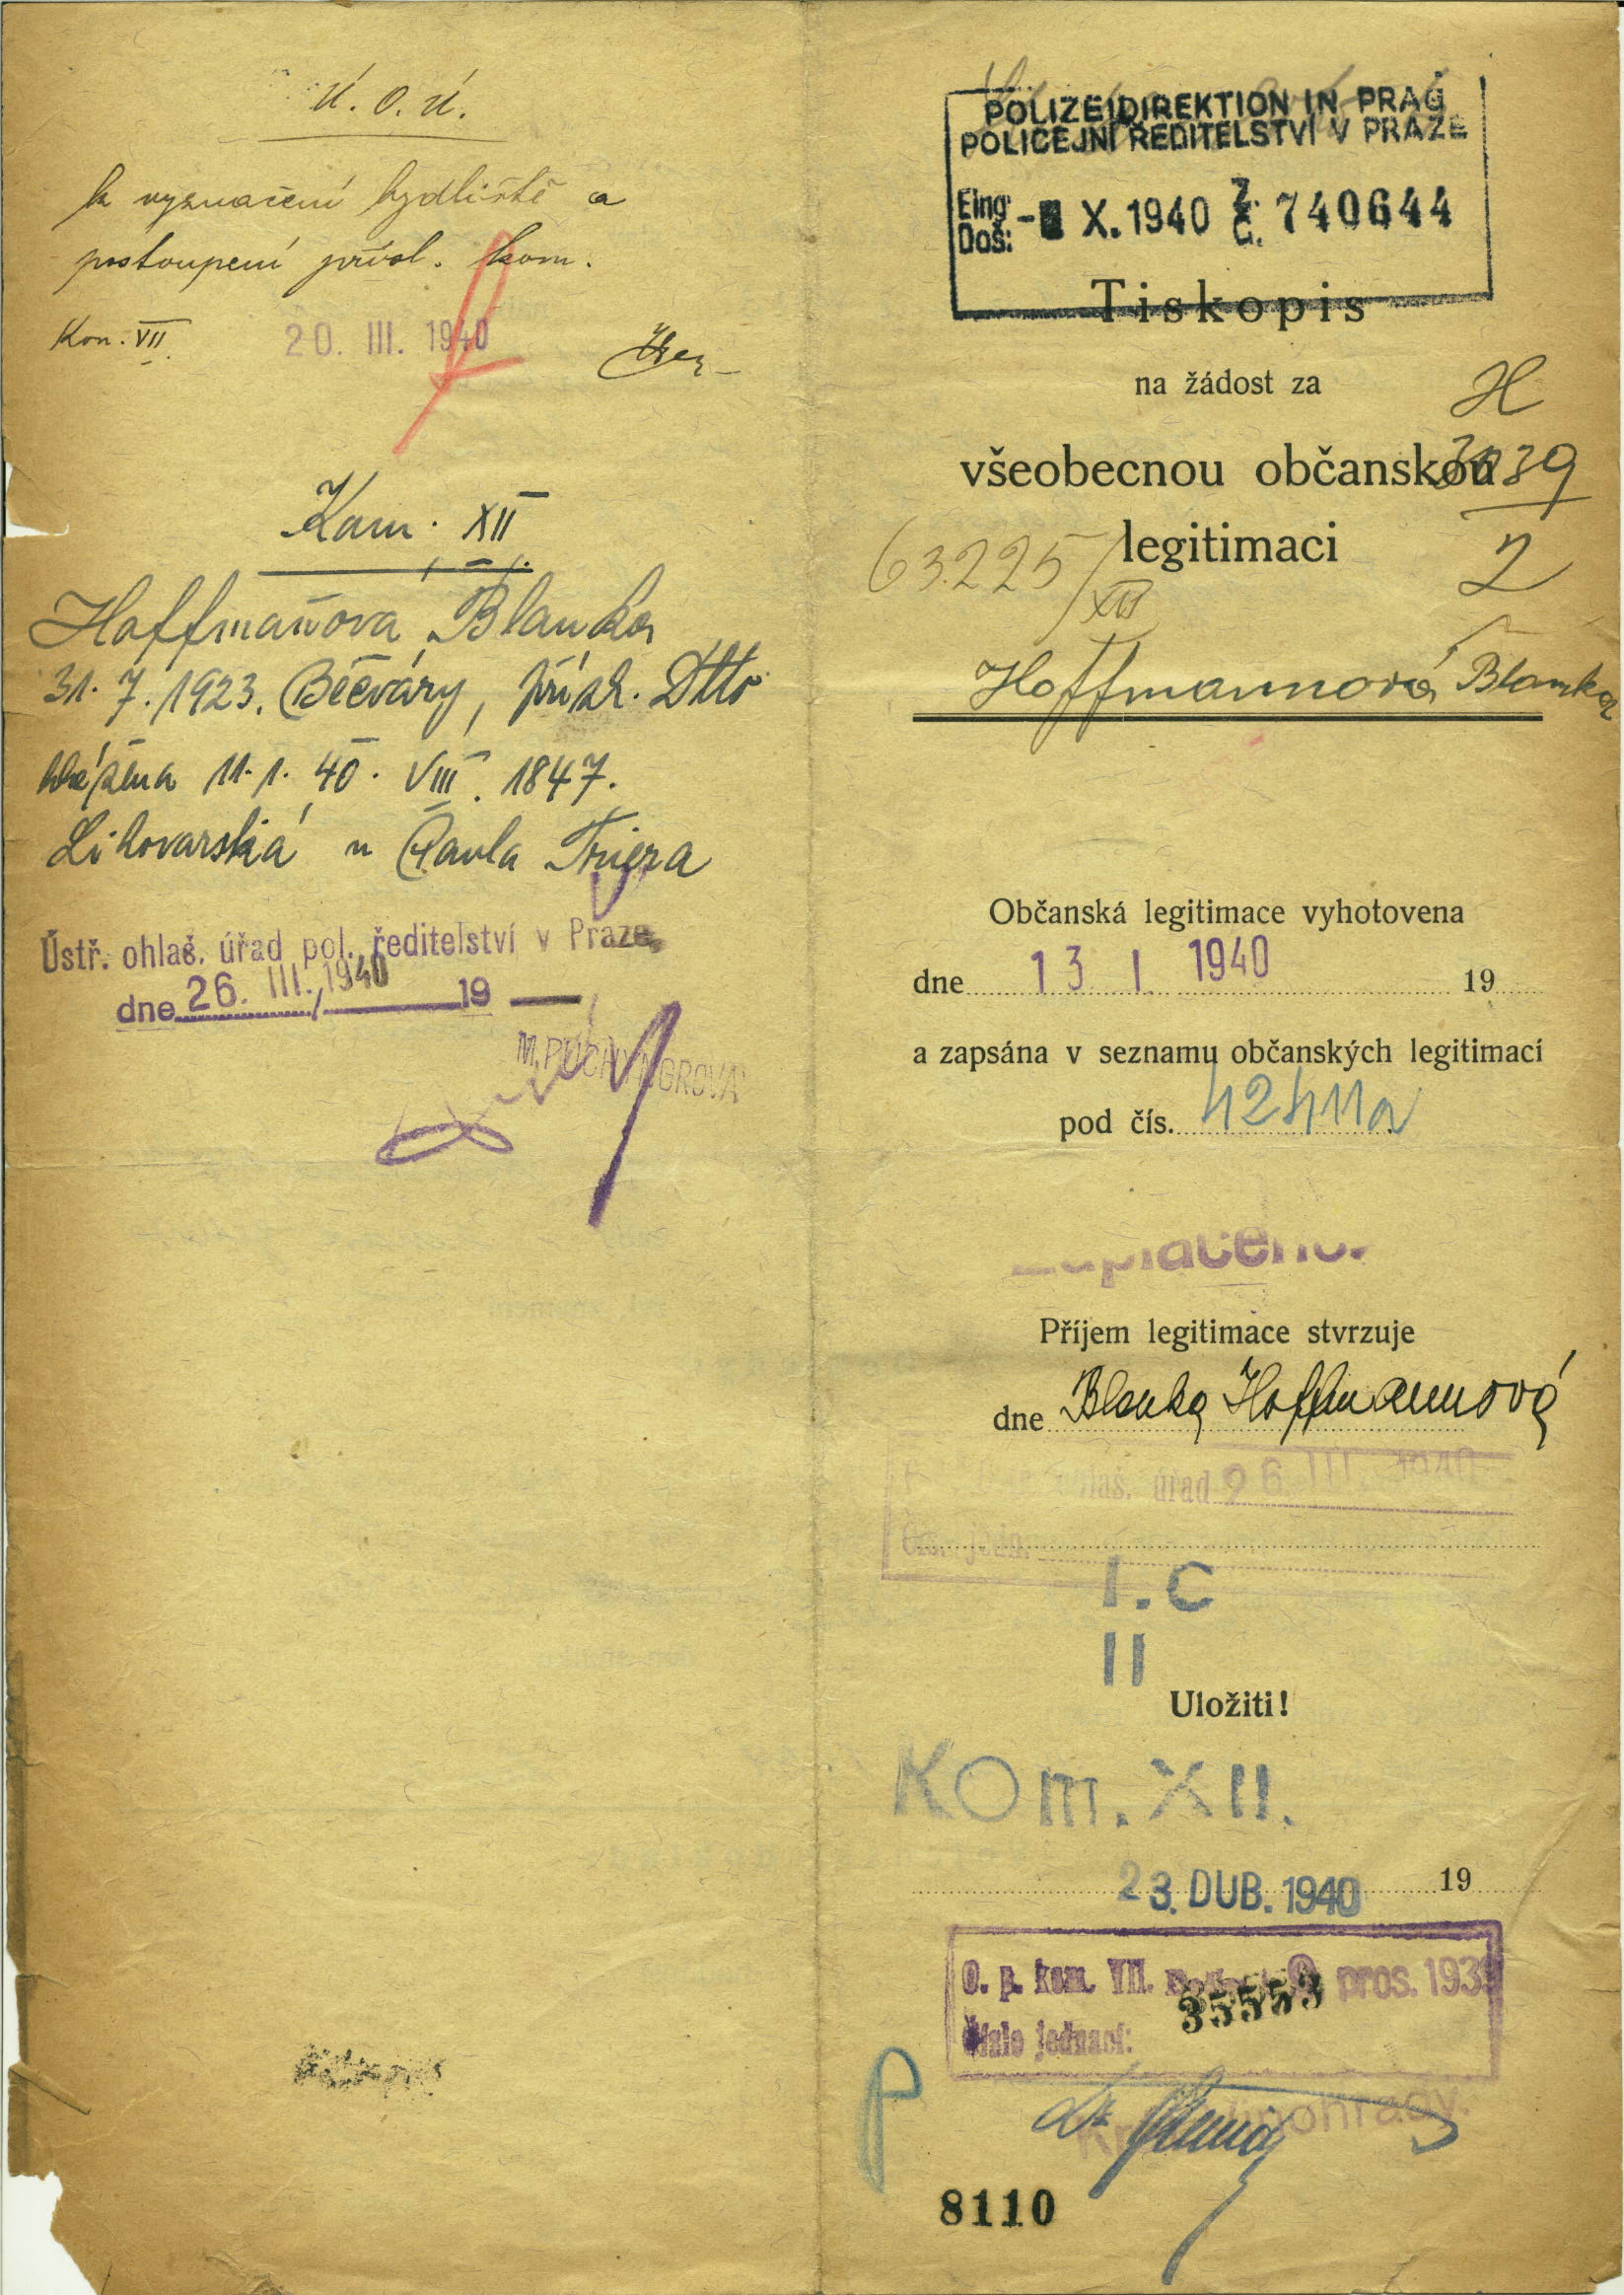 Ú. O. Ú.
k vyznačení bydliště a
postoupení přísl. kom.
Kom. VII.
20. III. 1940
Kom. XII
Hoffmanová Blanka
31. 7. 1923. Běčváry, přísl. Dtto
hlášena 11. 1. 40. VIII. 1847.
Lihovarská u Pavla Triera
Ústř. ohlaš. úřad pol. ředitelství v Praze,
dne 26. III. 1940 19
POLIZEIDIREKTION IN PRAG
POLICEJNÍ ŘEDITELSTVÍ V PRAZE
Eing: Doš: X. 1940 Z. Č. 740644
Tiskopis
na žádost za
H
všeobecnou občanskou
3039
legitimaci
2
63225/XII
Hoffmannová Blanka
Občanská legitimace vyhotovena
dne 13 I. 1940 19
a zapsána v seznamu občanských legitimací
pod čís. 42411a
Zaplaceno.
Příjem legitimace stvrzuje
dne Blanka Hoffmannová
ohlaš. úřad 26. III. 1940
Čís. jedn.
I. C
II
Uložiti!
KOM. XII.
23. DUB. 1940 19
O. p. kom. VII. pros. 1939
Číslo jednací: 35553
8110